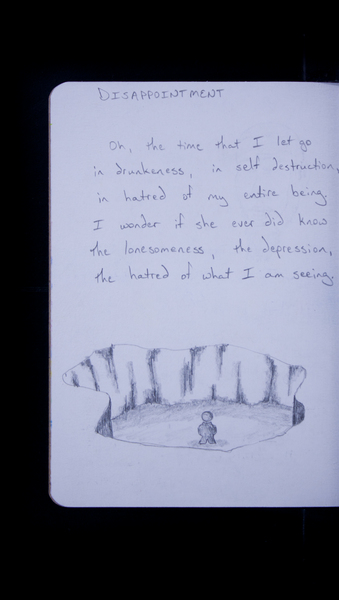 DISAPPOINTMENT
Oh, the time that I let go
in drunkeness, in self destruction,
in hatred of my entire being.
I wonder if she ever did know
the lonesomeness, the depression,
the hatred of what I am seeing.